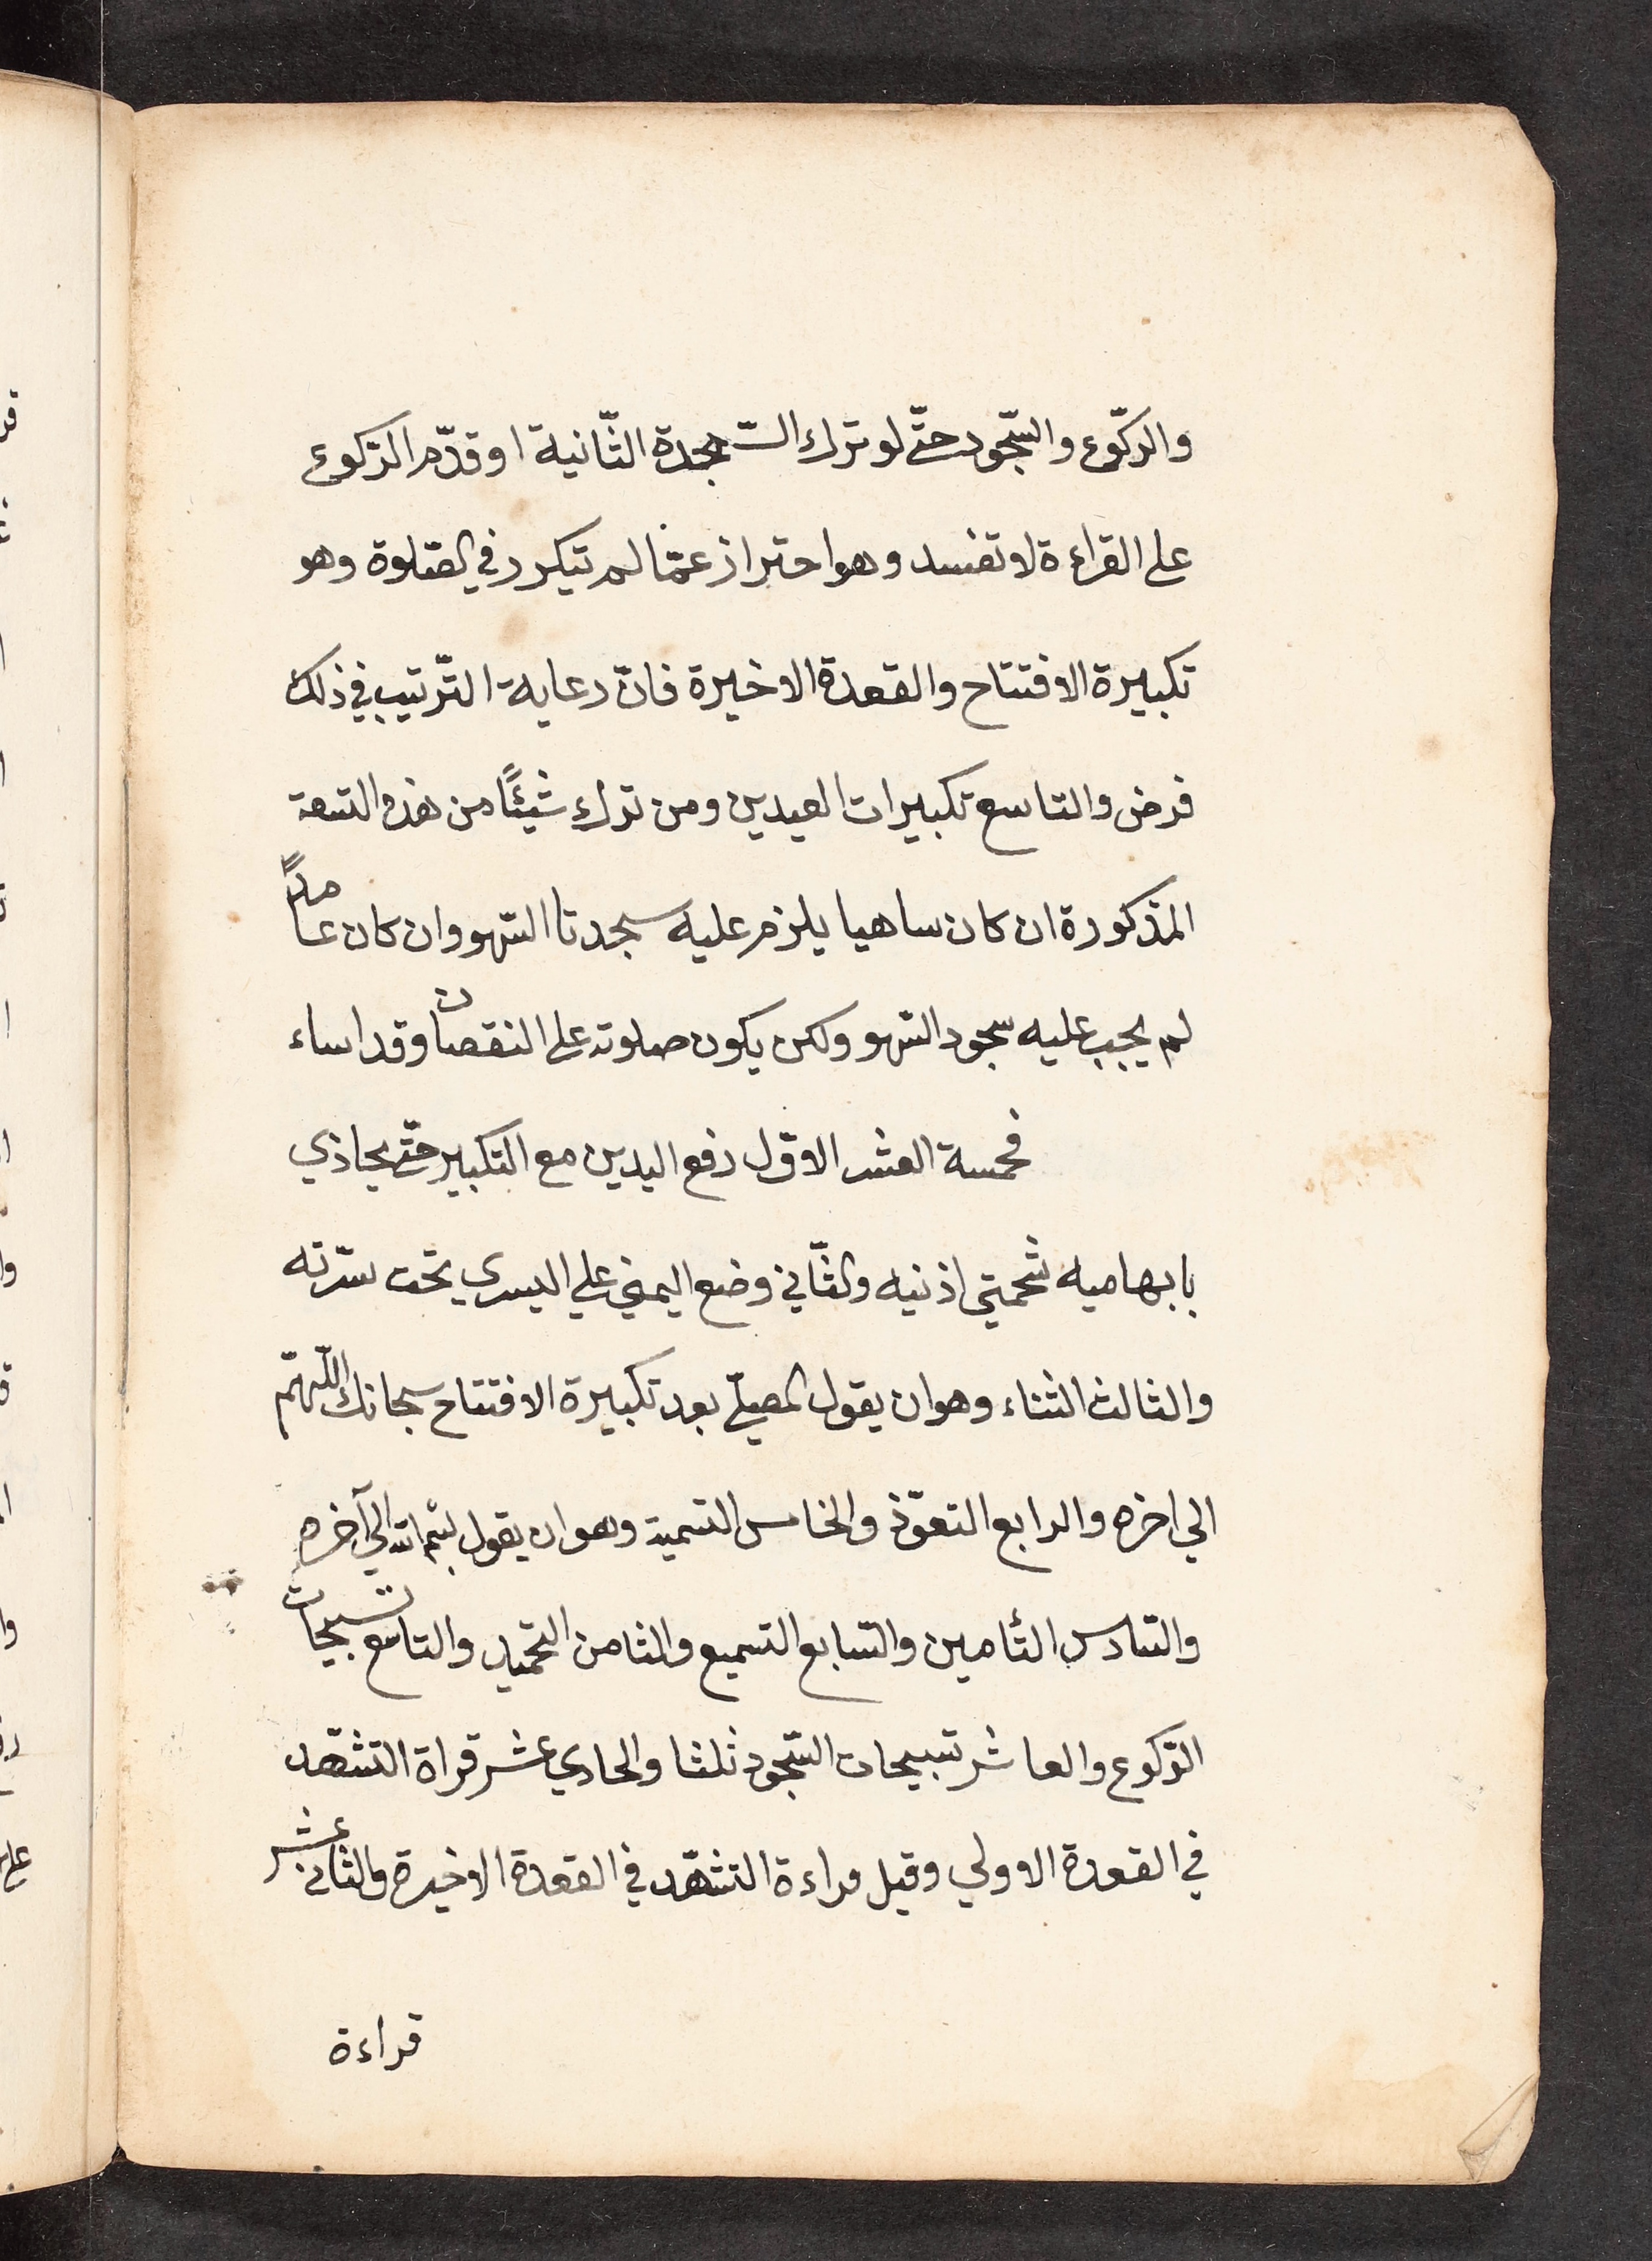 والركّوع والسّجود حتّى لو ترك السّجدة الثّانية او قدّم الرّكوع
على القراءة لا تفسد وهو احتراز عمّا لم تتكرر في الصّلوة وهو
تكبيرة الافتتاح والقعدة الاخيرة فانّ رعاية التّرتيب في ذلك
فرض والتاسع تكبيرات العيدين ومن ترك شيئًا من هذه التسعة
المذكورة ان كان ساهيا يلزم عليه سجدتا السّهو وان كان عامدًا
لم يجب عليه سجود السّهو ولكن يكون صلوته على النقصان وقد اساء
فخمسة العشر الاوّل رفع اليدين مع التكبير حتّى يحاذي
بابهاميه شحمتي اذنيه والثّاني وضع اليمني علي اليسري تحت سرّته
والثالث الثناء وهو ان يقول المصلّي بعد تكبيرة الافتتاح سبحانك اللّهمّ
الي اخره والرابع التعوّذ والخامس التسمية وهو ان يقول بسم الله الي آخره
والسّادس التأمين والسّابع التسميع والثامن التحميد والتاسع تسبيحات
الرّكوع والعاشر تسبيحات السّجود ثلثا والحادي عشر قراة التشهّد
في القعدة الاولي وقيل قراءة التشهّد في القعدة الاخيرة والثاني عشر
قراءة